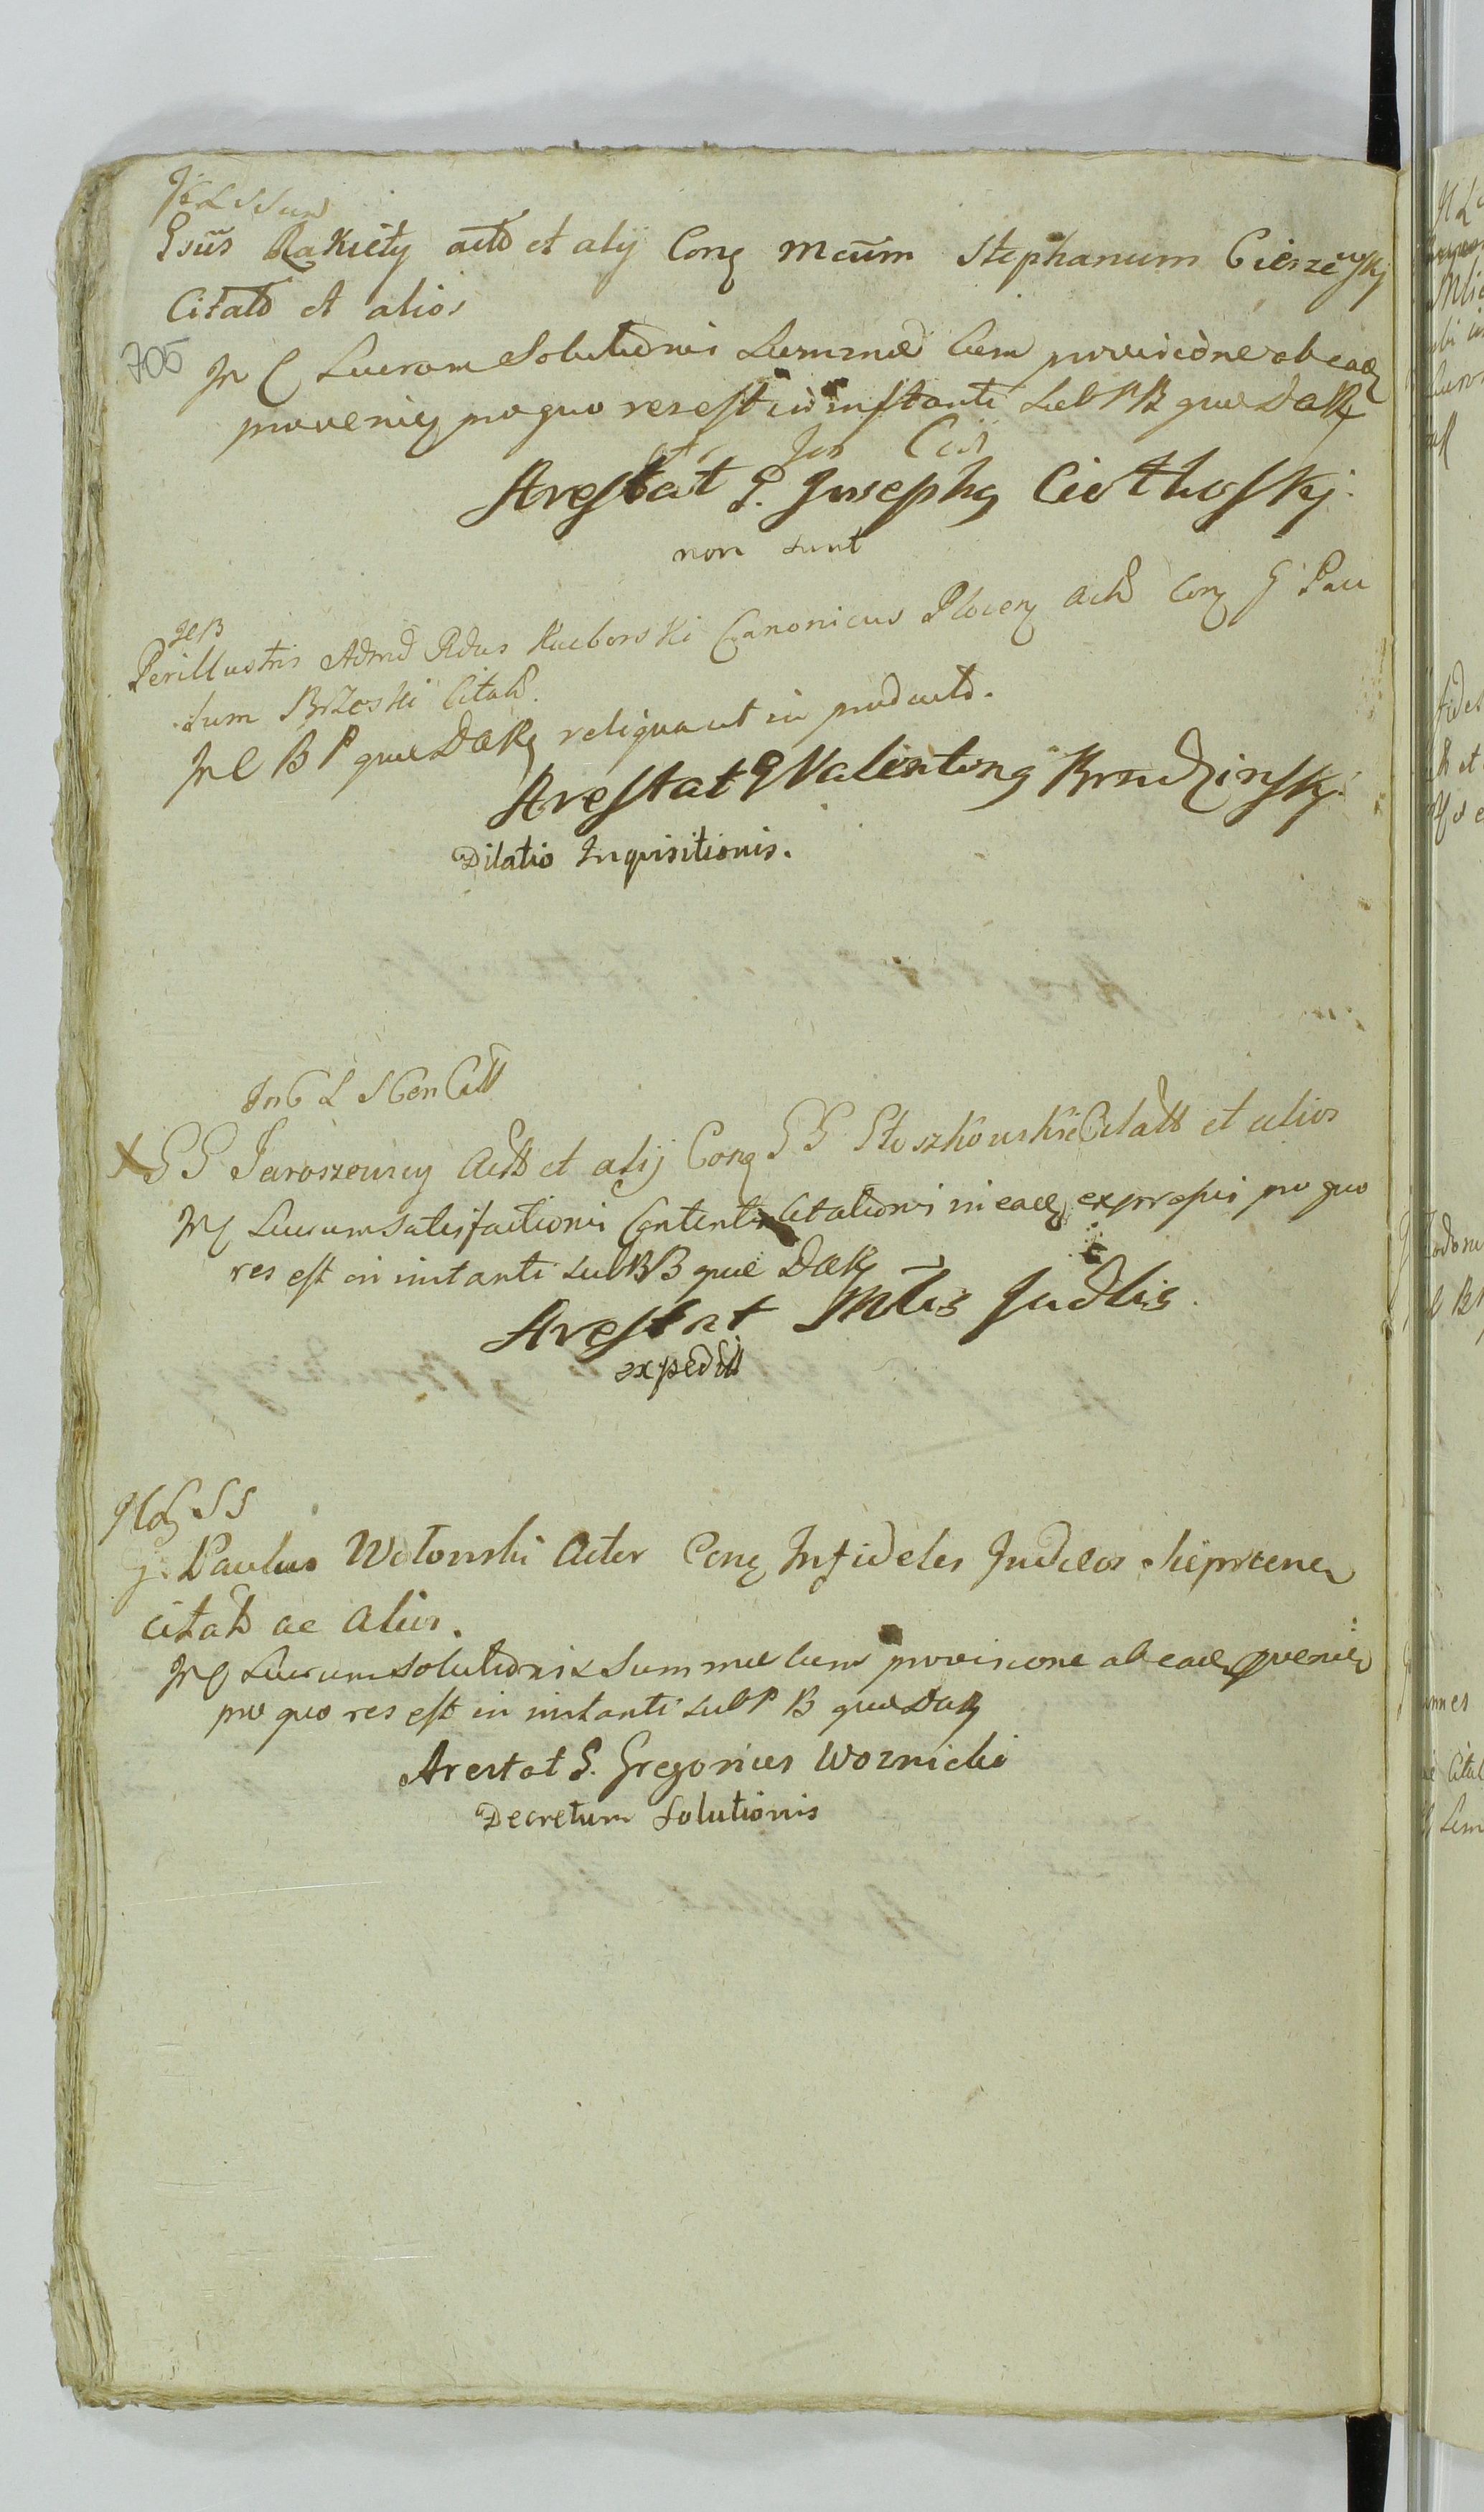 Gsus Rakiety actō et alij Conq Mcum Stephanum Cieszewskj
Citatō et alios
705
In C Lucrum Solutionis Summae Cum provisione ab eadq
provenienq pro quo res est in instanti Sub PB quae DaRq
Arestat G. Josephq Ciothoskj.
non sunt
Perillustris Admd Rdus Kuborski Canonicus Plocenq Actō Conq G Pau
lum Brzoski Citatō.
In C B P quae DaRq reliqua ut in producto.
Arestat G Valentinq Brudzinskj.
Dilatio Inquisitionis.
GG Jaroszewscy Actt et alij Conq GG Stoszkowskie Citatt et alios
In C Lucrum Satisfactionis Contentis Citationis in eadq expressis pro quo
res est in instanti sub PB quae DaRq
Arestat Mlis Judlis.
expeditt
SS
G. Paulus Wolonski Actor Conq Infideles Judaeos
citatō ac alios.
In C Lucrum Solutionis Summae Cum provisione ab eadq provenienq
pro quo res est in instanti sub P B quae DaRq
Arestat G. Gregorius Woznicki
Decretum Solutionis